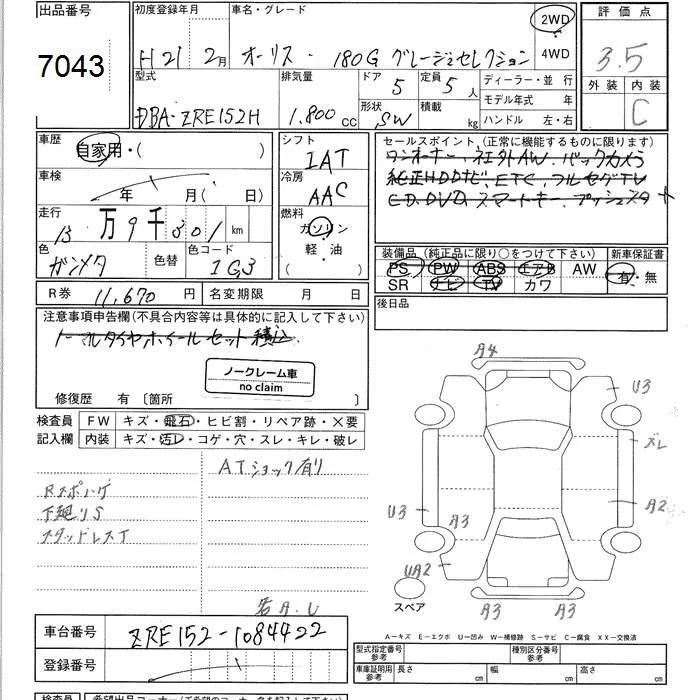 出品番号 初度登録年月 車名・グレード 2WD 4WD 評価点
7043 H21 2月 オーリス・180G グレージュセレクション 3.5
外装 内装
C
型式 排気量 ドア 定員 ディーラー・並行
DBA-ZRE152H 1.800cc 5 5人 モデル年式 年
形状 積載 ハンドル 左・右
SW kg
車歴 シフト セールスポイント(正常に機能するものに限ります)
自家用・( ) IAT ワンオーナー、社外AW、バックカメラ
車検 冷房 純正HDDナビ、ETC、フルセグTV
年 月( 日) AAC CD、DVD、スマートキー、プッシュスタート
走行 燃料
13万9千301km ガソリン
軽・油
( )
色 色替 色コード
ガンメタ 1G3
装備品(純正品に限り○をつけて下さい) 新車保証書
PS PW ABS エアB AW 有・無
SR ナビ TV カワ
R券 11,670円 名変期限 月 日
後日品
注意事項申告欄(不具合内容等は具体的に記入して下さい)
ノーマルタイヤホイールセット積込
ノークレーム車
no claim
修復歴 有〔箇所 〕
検査員 FW キズ・飛石・ヒビ割・リペア跡・X要
記入欄 内装 キズ・汚レ・コゲ・穴・スレ・キレ・破レ
ATショック有り
Rスポハゲ
下廻りS
スタッドレスT
A4
U3
ズレ
A2
U3
A3
A3
UA2
A3
A3
スペア
A−キズ E−エクボ U−凹み W−補修跡 S−サビ C−腐食 XX−交換済
車台番号 ZRE152-1084422
登録番号
型式指定番号 参考 種別区分番号 参考
車庫証明用 参考 長さ cm 幅 cm 高さ cm
検査員 希望出品コーナー(ご希望のコーナー名を記入して下さい)